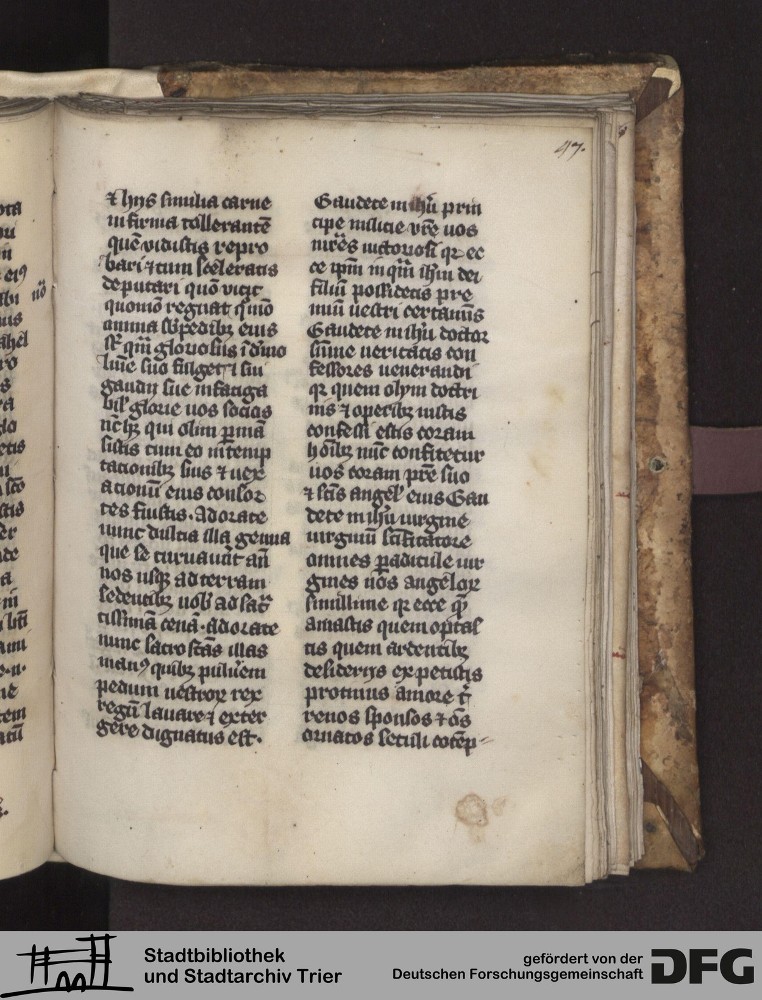 47.
⁊ hijs similia carne
infirma tollerantē
quē vidistis repro
bari ⁊ cum sceleratis
deputari quō vicit
quomō regnat qmō
omnia sb pedibꝫ eius
lūe suo fulget ⁊ sui
gaudij sue infatiga
bil' glorie uos socios
qui olim ꝑmā
sistis cum eo in temp
tacionibꝫ suis ⁊ vex
acionū eius consor
tes fuistis. Adorate
nunc dulcia illa genua
que se curuauūt an
uos usqꝫ ad terram
sedentibꝫ uob ad sac
tissimā cenā. adorate
nunc sacro scās illas
manꝰ quibꝫ puluēm
pedum uestroꝝ rex
regū lauare ⁊ exter
gere dignatus est.
Gaudete in ihū prin
cipe milicie vre uos
mires uictoriosi qꝛ ec
ce ipm in qm ihm dei
filiū possidetis pre
miū uestri certamīs
Gaudete in ihū doctor
sūme ueritatis con
fessores uenerandi
qꝛ quem olym doctri
nis ⁊ operibꝫ iustis
confessi estis coram
hōibꝫ nūc confitetur
uos coram pre suo
⁊ scis angel' eius Gau
dete in ihū uirginē
uirginū scificatore
omnes paradicule uir
gines uos angeloꝝ
simillime qꝛ ecce q
amastis quem optas
tis quem ardentibꝫ
desiderijs expetistis
protinus amore
renos sponsos ⁊ os
ornatos seculi cotēp
Stadtbibliothek
und Stadtarchiv Trier
gefördert von der
Deutschen Forschungsgemeinschaft
DFG